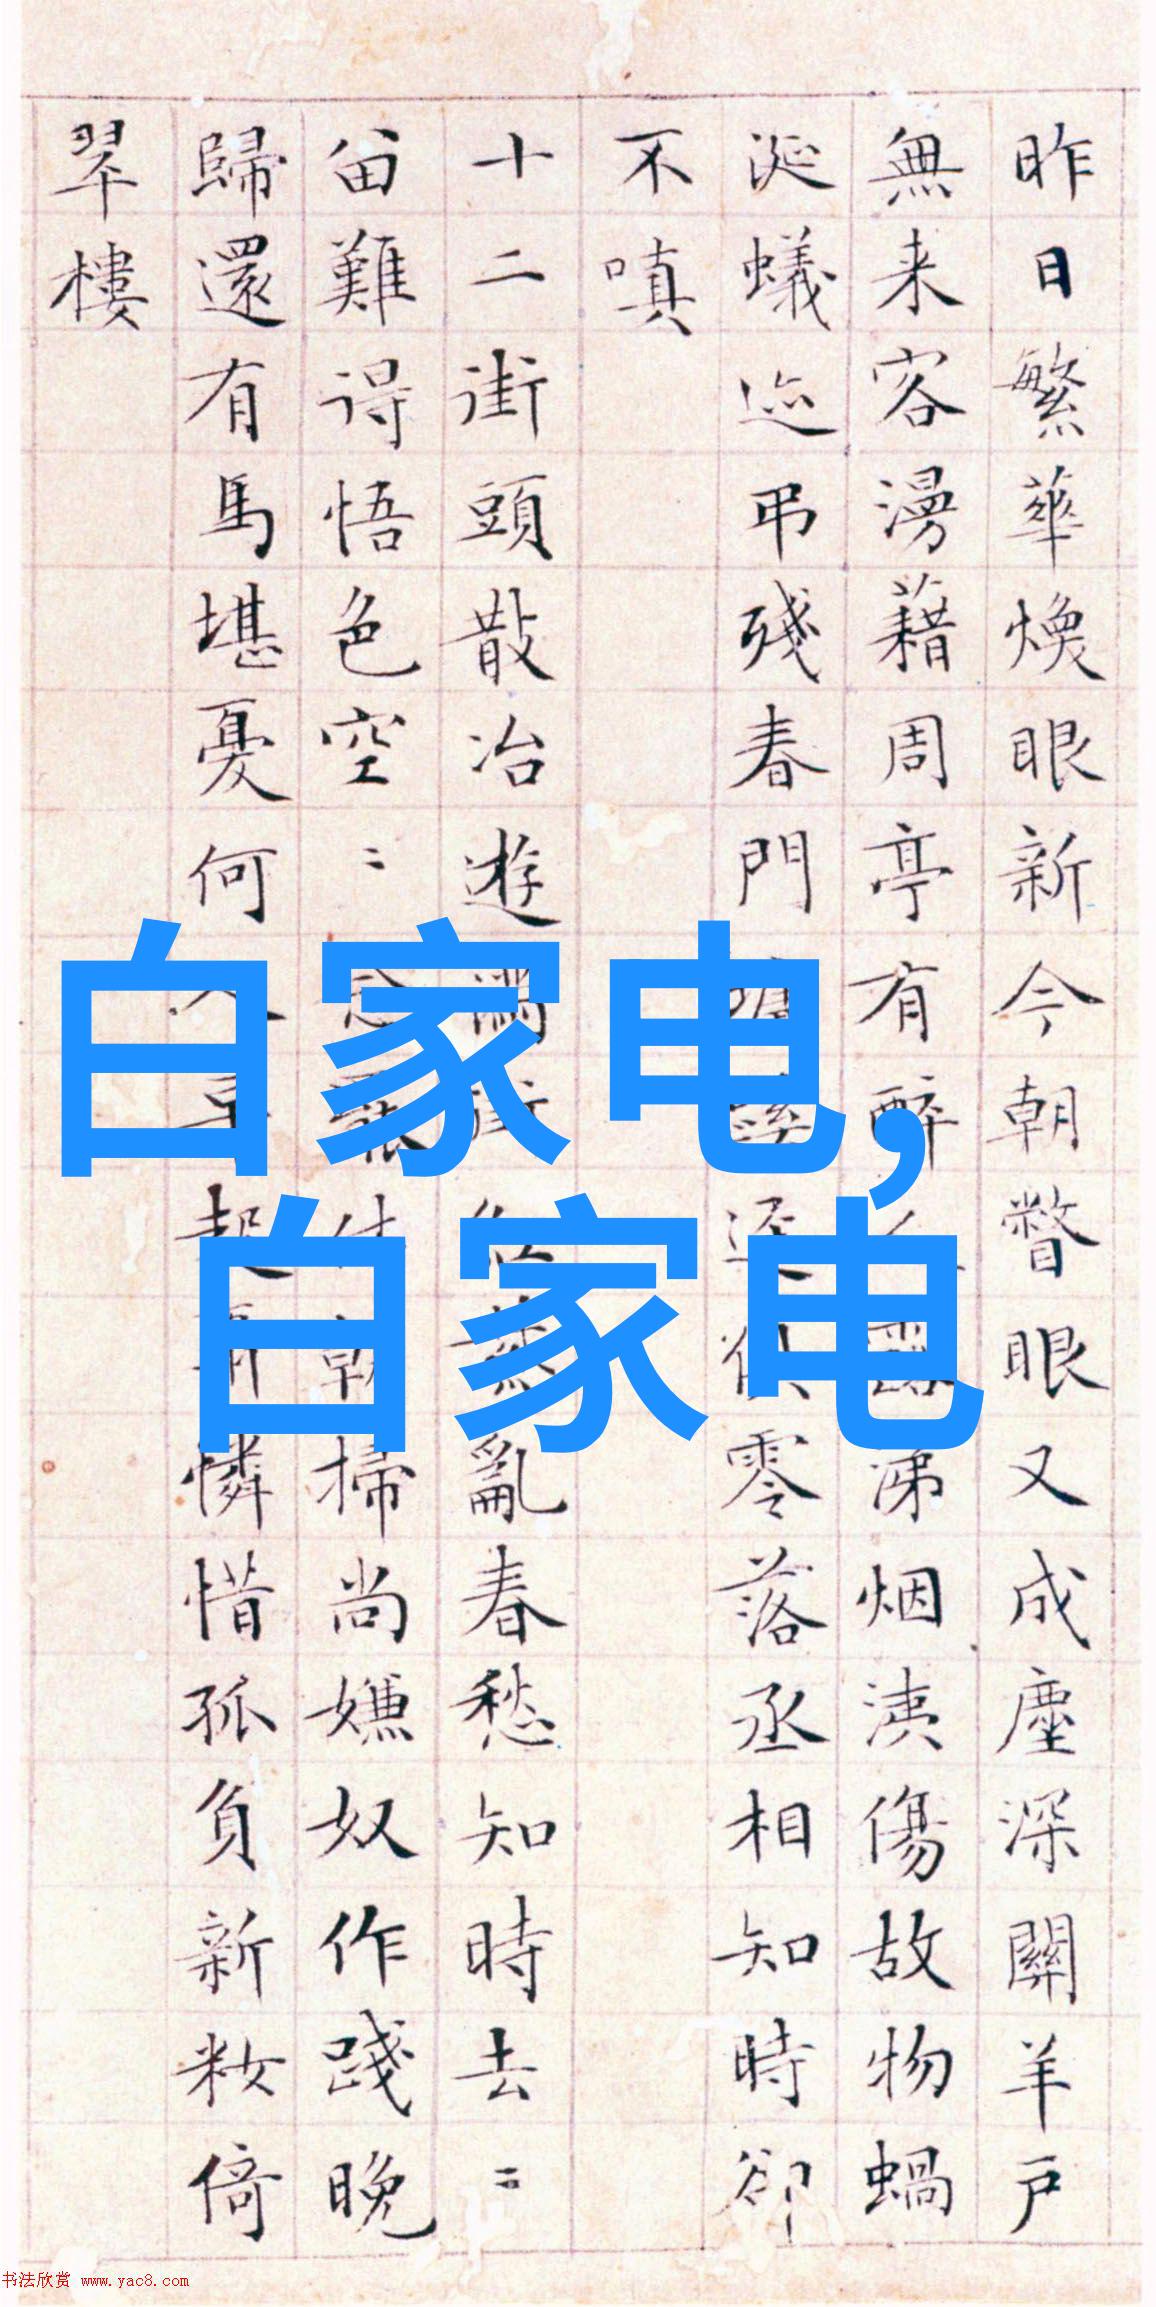 昨日繁華煥眼新今朝瞥眼又成塵深關羊戶
無来客漫藉周亭有醉涕烟洟傷故物蝸
涎蟻迹弔殘春門逕俱零落丞相知時卻
不嗔
十二街頭散冶遊滿街亂春愁知時去〻
留難得悟色空〻休掃尚嫌奴作踐晚
歸還有馬堪憂何人早起憐惜孤負新妝倚
翠樓
白家电,
白家电
书法欣赏 www.yac8.com